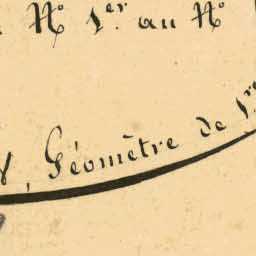 N° 1er au N°
Géomètre de 1re